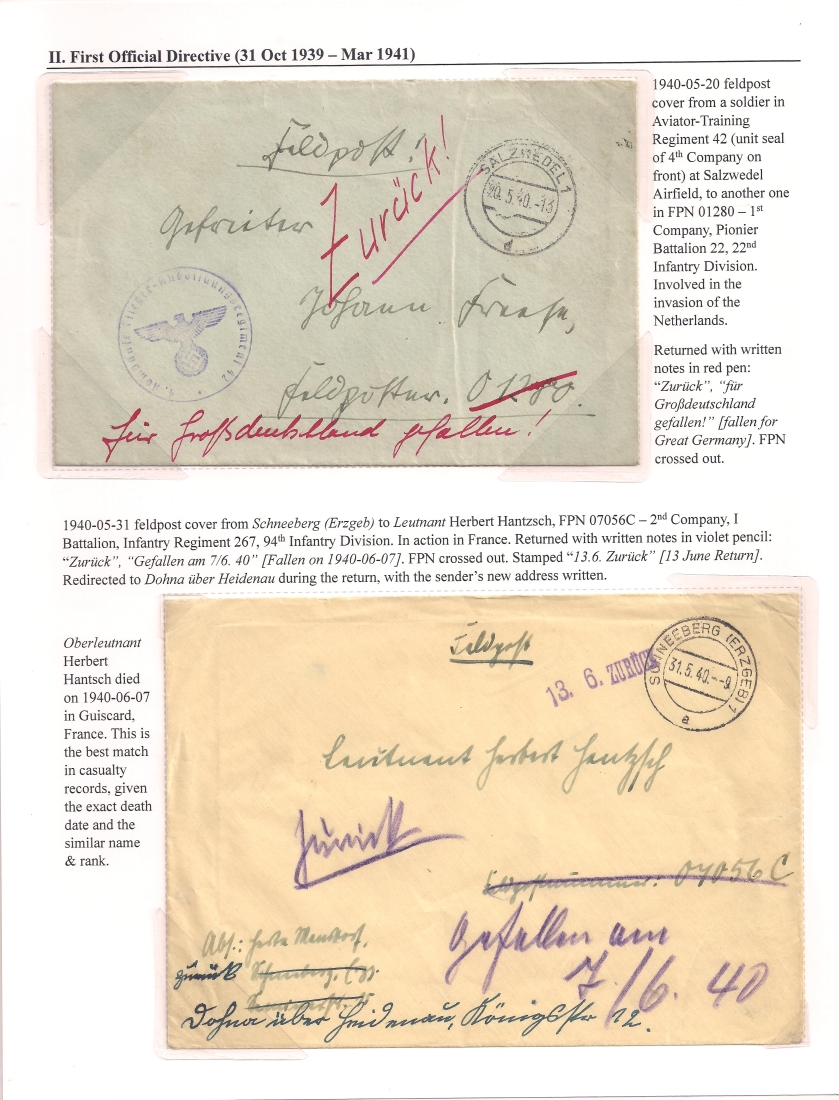 II. First Official Directive (31 Oct 1939 – Mar 1941)
Feldpost!
Zurück!
SALZWEDEL 1
20.5.40.-13
a
Gefreiter
4. Kompanie Flieger-Ausbildungsregiment 42
Johann Freese,
Feldpostnr. 01280.
für Großdeutschland gefallen!
1940-05-20 feldpost
cover from a soldier in
Aviator-Training
Regiment 42 (unit seal
of 4th Company on
front) at Salzwedel
Airfield, to another one
in FPN 01280 – 1st
Company, Pionier
Battalion 22, 22nd
Infantry Division.
Involved in the
invasion of the
Netherlands.
Returned with written
notes in red pen:
“Zurück”, “für
Großdeutschland
gefallen!” [fallen for
Great Germany]. FPN
crossed out.
1940-05-31 feldpost cover from Schneeberg (Erzgeb) to Leutnant Herbert Hantzsch, FPN 07056C – 2nd Company, I
Battalion, Infantry Regiment 267, 94th Infantry Division. In action in France. Returned with written notes in violet pencil:
“Zurück”, “Gefallen am 7/6. 40” [Fallen on 1940-06-07]. FPN crossed out. Stamped “13.6. Zurück” [13 June Return].
Redirected to Dohna über Heidenau during the return, with the sender’s new address written.
Oberleutnant
Herbert
Hantsch died
on 1940-06-07
in Guiscard,
France. This is
the best match
in casualty
records, given
the exact death
date and the
similar name
& rank.
Feldpost
13. 6. ZURÜCK
SCHNEEBERG (ERZGEB) 1
31.5.40.--9
a
Leutnant Herbert Hantzsch
Zurück
Feldpostnummer: 07056 C
Gefallen am
7/6. 40
Abs.: Herta
zurück Schneeberg, (Erz.
Dohna über Heidenau, Königstr 12.